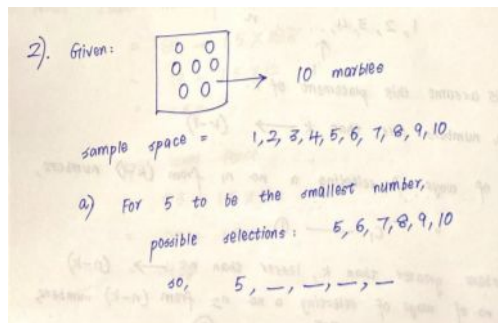 2). Given:
10 marbles
sample space = 1, 2, 3, 4, 5, 6, 7, 8, 9, 10
a) For 5 to be the smallest number,
possible selections: 5, 6, 7, 8, 9, 10
so, 5, _, _, _, _